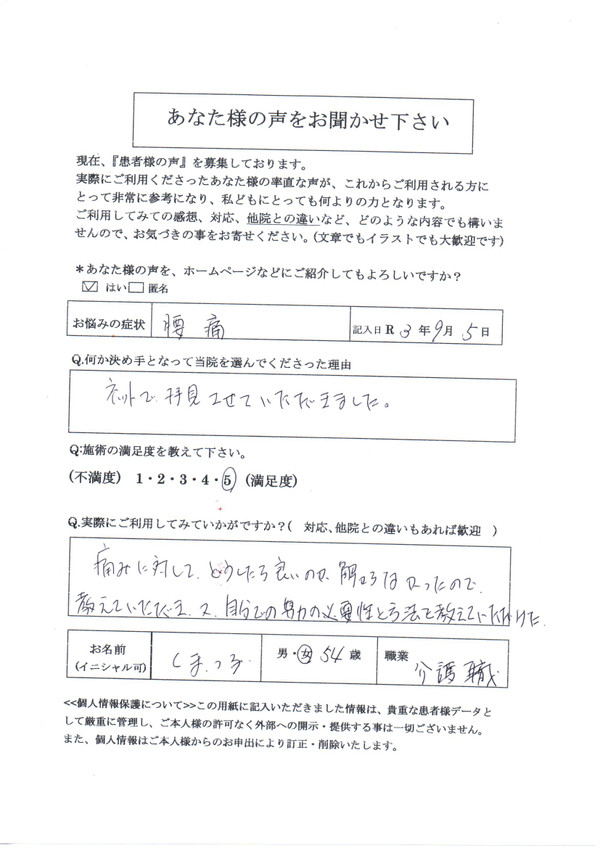 あなた様の声をお聞かせ下さい
現在、『患者様の声』を募集しております。
実際にご利用くださったあなた様の率直な声が、これからご利用される方に
とって非常に参考になり、私どもにとっても何よりの力となります。
ご利用してみての感想、対応、他院との違いなど、どのような内容でも構いま
せんので、お気づきの事をお寄せください。(文章でもイラストでも大歓迎です)
＊あなた様の声を、ホームページなどにご紹介してもよろしいですか？
☑ はい □ 匿名
お悩みの症状 腰痛 記入日 R 3 年 9 月 5 日
Q.何か決め手となって当院を選んでくださった理由
ネットで拝見させていただきました。
Q:施術の満足度を教えて下さい。
(不満度) 1・2・3・4・5 (満足度)
Q.実際にご利用してみていかがですか？( 対応、他院との違いもあれば歓迎 )
痛みに対して、どうしたら良いのか、解らなかったので、
教えていただき、又、自分での努力の必要性と方法を教えていただけた。
お名前 くまっ子 男・女 54 歳 職業 介護職
(イニシャル可)
<<個人情報保護について>>この用紙に記入いただきました情報は、貴重な患者様データと
して厳重に管理し、ご本人様の許可なく外部への開示・提供する事は一切ございません。
また、個人情報はご本人様からのお申出により訂正・削除いたします。